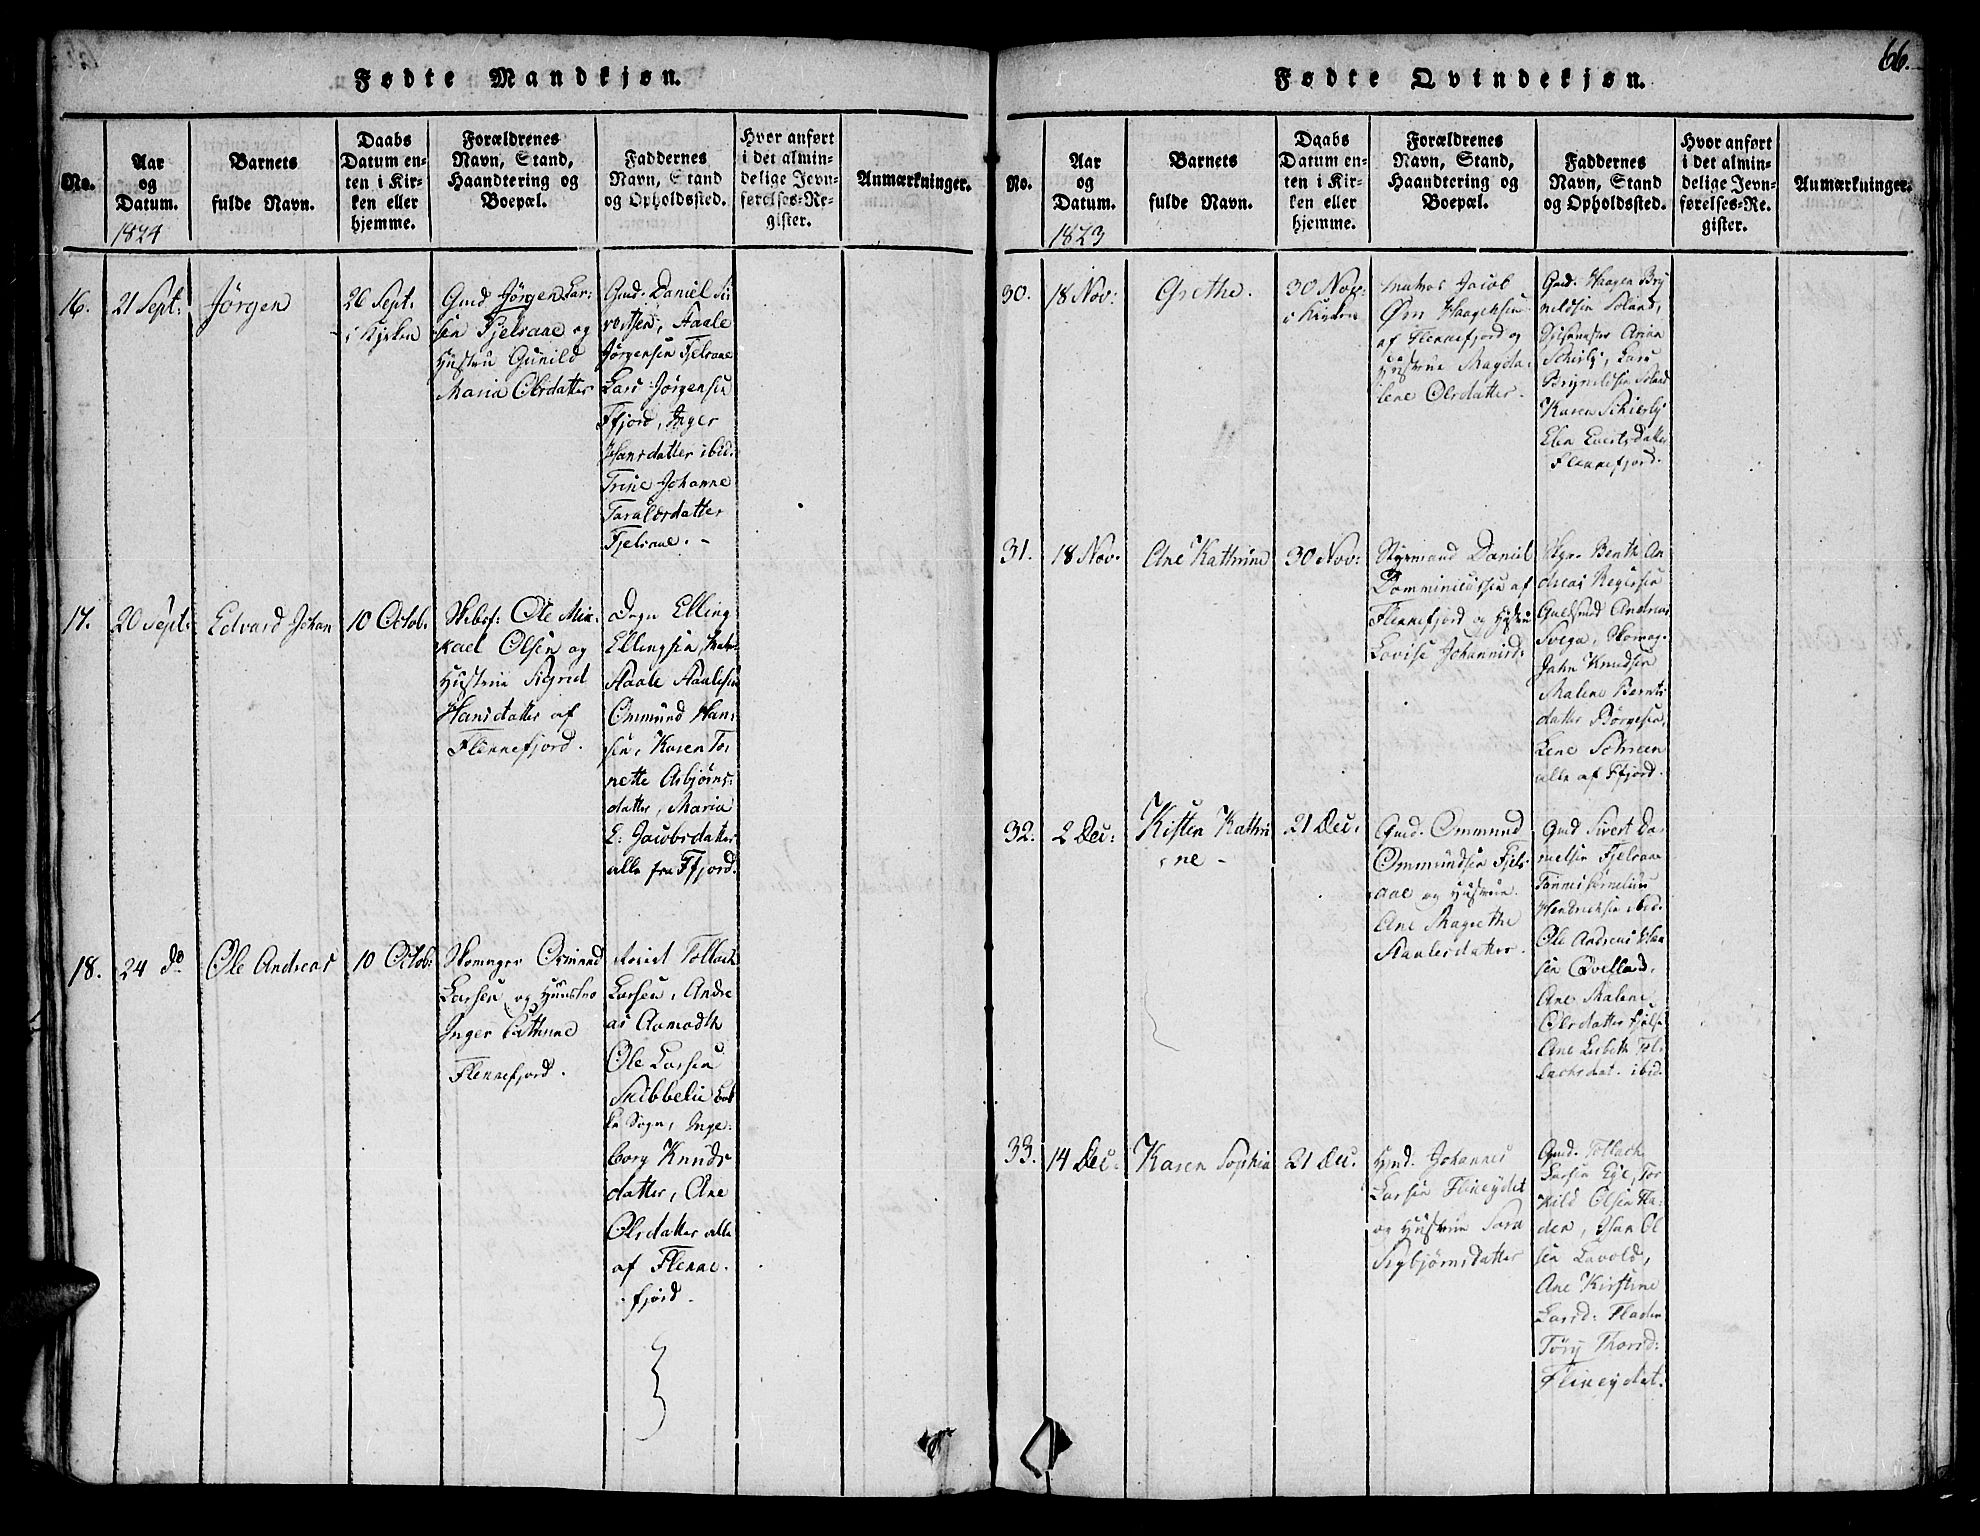 Fødte Mandkjøn.
No.
Aar
og
Datum.
Barnets
fulde Navn.
Daabs
Datum en-
ten i Kir-
ken eller
hjemme.
Forældrenes
Navn, Stand,
Haandtering og
Boepæl.
Faddernes
Navn, Stand
og Opholdssted.
Hvor anført
i det almin-
delige Jevn-
førelses-Re-
gister.
Anmærkninger.
1824
16.
21 Sept:
Jørgen
26 Sept.
i Kirken
Gmd Jørgen Lar-
sen Fjelsaae og
Hustru Gunild
Maria Olsdatter
Gmd. Daniel Si
vertsen, Staale
Jørgensen Fjelsaae
Lars Jørgensen
Ffjord, Inger
Hansdatter ibid:
Trine Johanne
Taraldsdatter
Fjelsaae. -
17.
20 Sept:
Edvard Johan
10 Octob.
Skibsf: Ole Mi
kael Olsen og
Hustrue Sigrid
Hansdatter af
Flennefjord.
Elling
Ellingsen,
Staale Staalesen
Ommund Han
sen, Karen To
nette Asbjørns
datter, Maria
E: Jacobsdatter
alle fra Ffjord.
18.
24 do
Ole Andreas
10 Octob:
Skomager Osmund
Larsen og Hustro
Inger Cathrine
Flennefjord.
Tollach
Larsen, Andre
as Aamodth
Ole Larsen
Skibbelie
Sogn, Inge-
borg Knuds
datter, Ane
Olsdatter alle
af Flenne-
fjord.
66.
Fødte Qvindekjøn.
No.
Aar
og
Datum.
Barnets
fulde Navn.
Daabs
Datum en-
ten i Kir-
ken eller
hjemme.
Forældrenes
Navn, Stand,
Haandtering og
Boepæl.
Faddernes
Navn, Stand
og Opholdssted.
Hvor anført
i det almin-
delige Jevn-
førelses-Re-
gister.
Anmærkninger.
1823
30.
18 Nov:
Grethe.
30 Nov:
i Kirken
Matros Jacob
Haagensen
af Flennefjord og
Hustrue Magda-
lene Olsdatter.
Gmd. Haagen Bry
nildsen
Lars
Brynildsen
Karen Schierby
Elen Evertsdatter
Flennefjord.
31.
18 Nov:
Ane Kathrine
30 Nov:
Styrmand Daniel
Dominicussen af
Flennefjord og Hustru
Lovise Johannisd:
Benth An
dreas
Guldsmed Andreas
Svega, Skomag.
Jahn Knudsen
Malene Bernts
datter Børgesen,
Lene
alle af Ffjord.
32.
2 Dec:
Kisten Kathri
ne -
21 Dec:
Gmd. Ommund
Ommundsen Fjels-
aae og Hustrue
Ane Magrethe
Staalesdatter.
Gmd Sivert Da-
nielsen Fjelsaae
Tønnes Cornelius
Hendriksen ibid.
Ole Andreas Han
sen Qvelland,
Ane Malene
Olsdatter
Ane Lisbeth Tol-
lachsdat. ibid.
33.
14 Dec:
Karen Sophia
21 Dec.
Hmd. Johannes
Larsen Flineydet
og Hustrue Sara
Sigbjørnsdatter
Gmd. Tollach
Larsen Eye, Tor
kild Olsen Fla-
den, Ol
sen Lavold,
Ane Kirstine
Larsd: Fladen
Tørij Thorsd:
Flineydet.